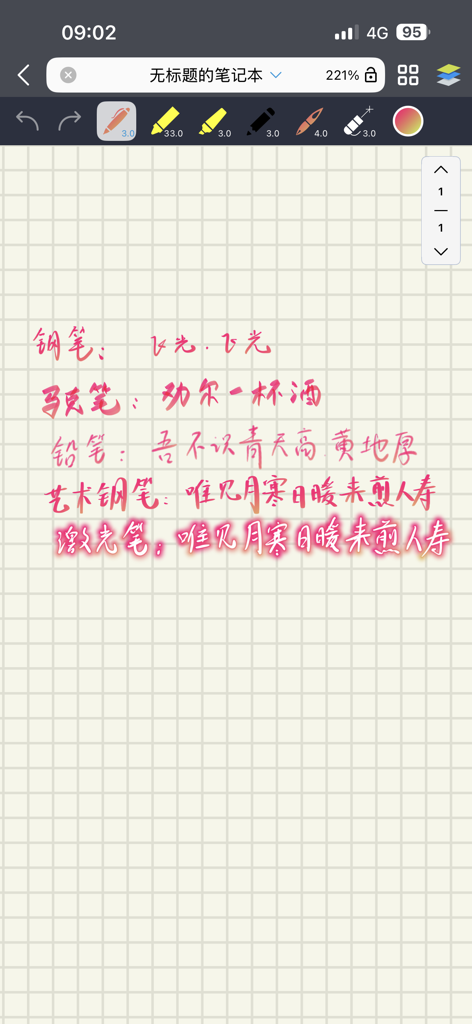 09:02
4G
95
无标题的笔记本
221%
3.0
33.0
3.0
3.0
4.0
3.0
1
1
钢笔：飞光.飞光
马克笔：劝尔一杯酒
铅笔：吾不识青天高.黄地厚
艺术钢笔：唯见月寒日暖来煎人寿
激光笔：唯见月寒日暖来煎人寿